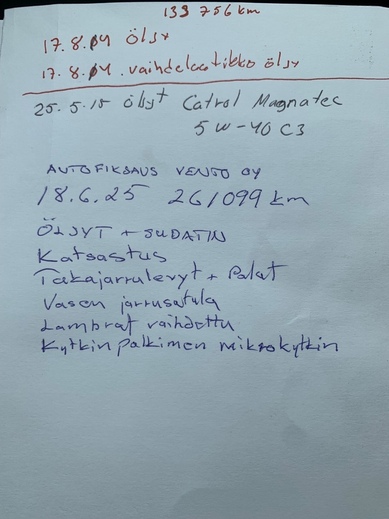 133 756 km
17.8.04 öljy
17.8.04. vaihdelaatikko öljy
25.5.15 Öljyt Catrol Magnatec
5W-40 C3
AUTOFIKSAUS VENTO OY
18.6.25 261099 km
ÖLJYT + SUDATIN
Katsastus
Takajarrulevyt + Palat
Vasen jarrusatula
Lamput vaihdettu
Kytkinpalkimen mikrokytkin